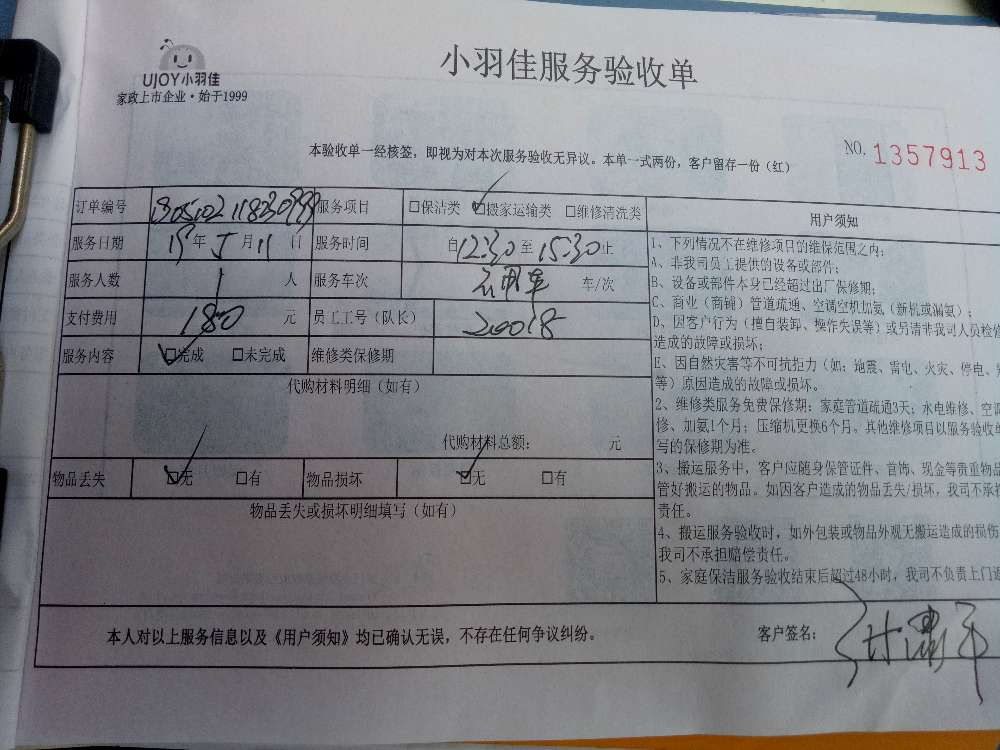 UJOY小羽佳
家政上市企业·始于1999
小羽佳服务验收单
NO. 1357913
本验收单一经核签，即视为对本次服务验收无异议。本单一式两份，客户留存一份（红）
订单编号 服务项目 □保洁类 ☑搬家运输类 □维修清洗类
服务日期 19年5月11日 服务时间 自12:30至15:30止
服务人数 1人 服务车次 车/次
支付费用 180元 员工工号（队长） 20018
服务内容 ☑完成 □未完成 维修类保修期
代购材料明细（如有）
代购材料总额： 元
物品丢失 ☑无 □有 物品损坏 ☑无 □有
物品丢失或损坏明细填写（如有）
用户须知
1、下列情况不在维修项目的维保范围之内：
A、非我司员工提供的设备或部件；
B、设备或部件本身已经超过出厂保修期；
C、商业（商铺）管道疏通、空调空机加氨（新机或漏氨）；
D、因客户行为（擅自装卸、操作失误等）或另请非我司人员检修
造成的故障或损坏；
E、因自然灾害等不可抗拒力（如：地震、雷电、火灾、停电、
等）原因造成的故障或损坏。
2、维修类服务免费保修期：家庭管道疏通3天；水电维修、空调
修、加氨1个月；压缩机更换6个月。其他维修项目以服务验收单
写的保修期为准。
3、搬运服务中，客户应随身保管证件、首饰、现金等贵重物品
管好搬运的物品。如因客户造成的物品丢失/损坏，我司不承担
责任。
4、搬运服务验收时，如外包装或物品外观无搬运造成的损伤
我司不承担赔偿责任。
5、家庭保洁服务验收结束后超过48小时，我司不负责上门返
本人对以上服务信息以及《用户须知》均已确认无误，不存在任何争议纠纷。
客户签名：